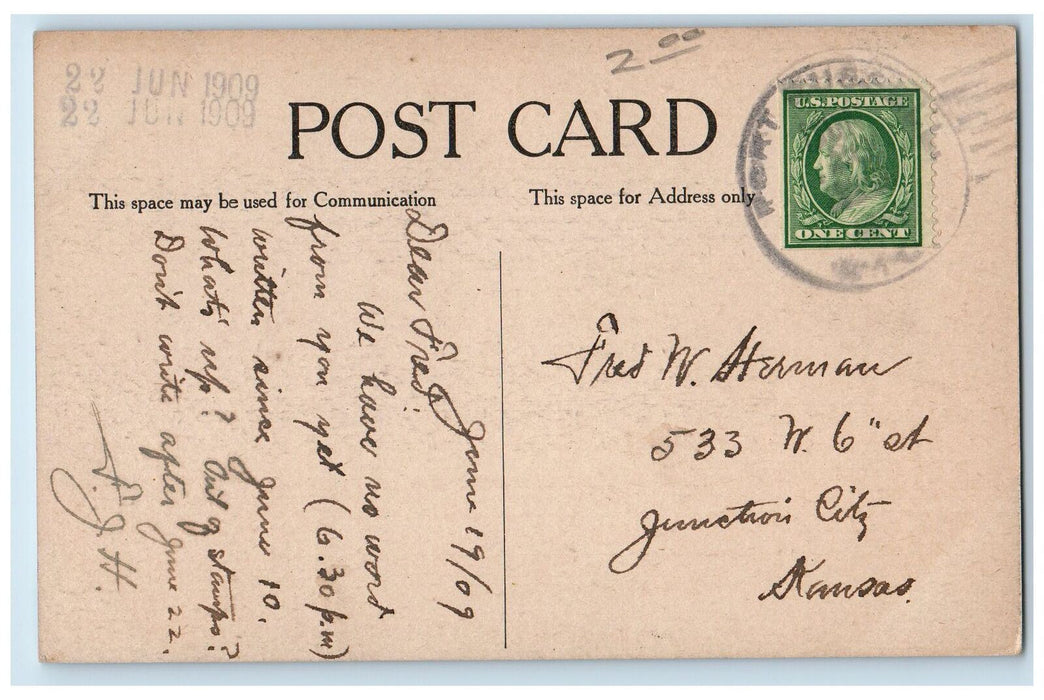 22 JUN 1909
22 JUN 1909
2.00
POST CARD
This space may be used for Communication
This space for Address only
U.S. POSTAGE
ONE CENT
June 19/09
Dear Fred:
We have no word
from you yet (6.30 p.m)
written since June 10.
What's up? Out of stamps?
Don't write after June 22.
F. J. H.
Fred W. Herman
533 W. 6" st
Junction City
Kansas.